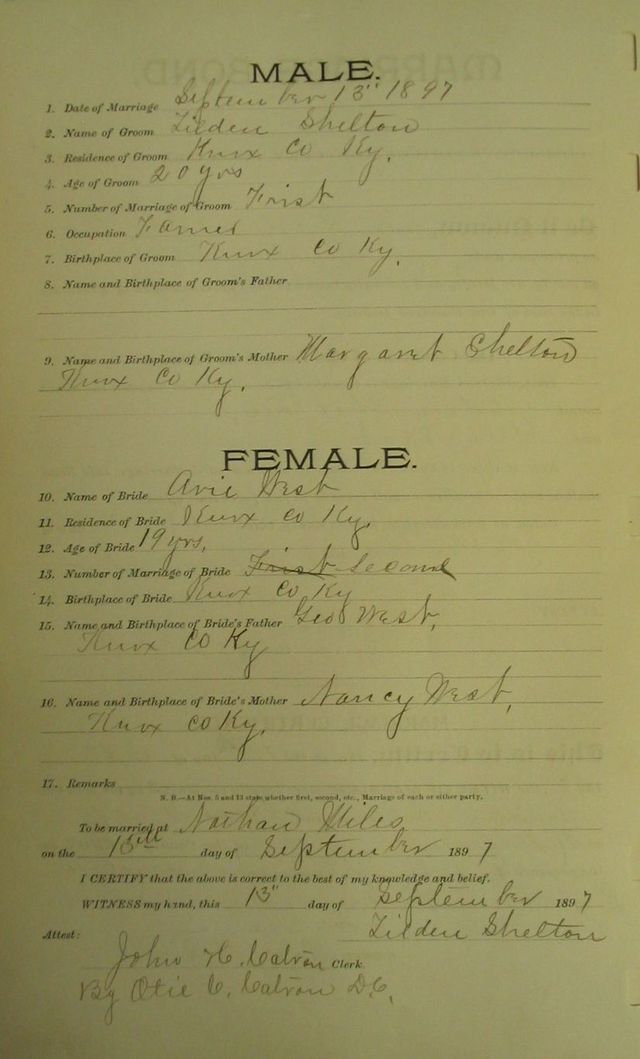 MALE.
1. Date of Marriage September 13" 1897
2. Name of Groom Tilden Shelton
3. Residence of Groom Knox Co Ky.
4. Age of Groom 20 yrs
5. Number of Marriage of Groom Frist
6. Occupation Farmer
7. Birthplace of Groom Knox Co Ky.
8. Name and Birthplace of Groom's Father
9. Name and Birthplace of Groom's Mother Margaret Shelton
Knox Co Ky.
FEMALE.
10. Name of Bride Avie West
11. Residence of Bride Knox Co Ky.
12. Age of Bride 19 yrs.
13. Number of Marriage of Bride Frist Second
14. Birthplace of Bride Knox Co Ky
15. Name and Birthplace of Bride's Father Geo West,
Knox Co Ky
16. Name and Birthplace of Bride's Mother Nancy West,
Knox Co Ky.
17. Remarks
N. B.—At Nos. 5 and 13 state whether first, second, etc., Marriage of each or either party.
To be married at Nathan Miles
on the 13th day of September 1897
I CERTIFY that the above is correct to the best of my knowledge and belief.
WITNESS my hand, this 13" day of September 1897
Tilden Shelton
Attest:
John H. Catron Clerk
By Otie C. Catron D.C.